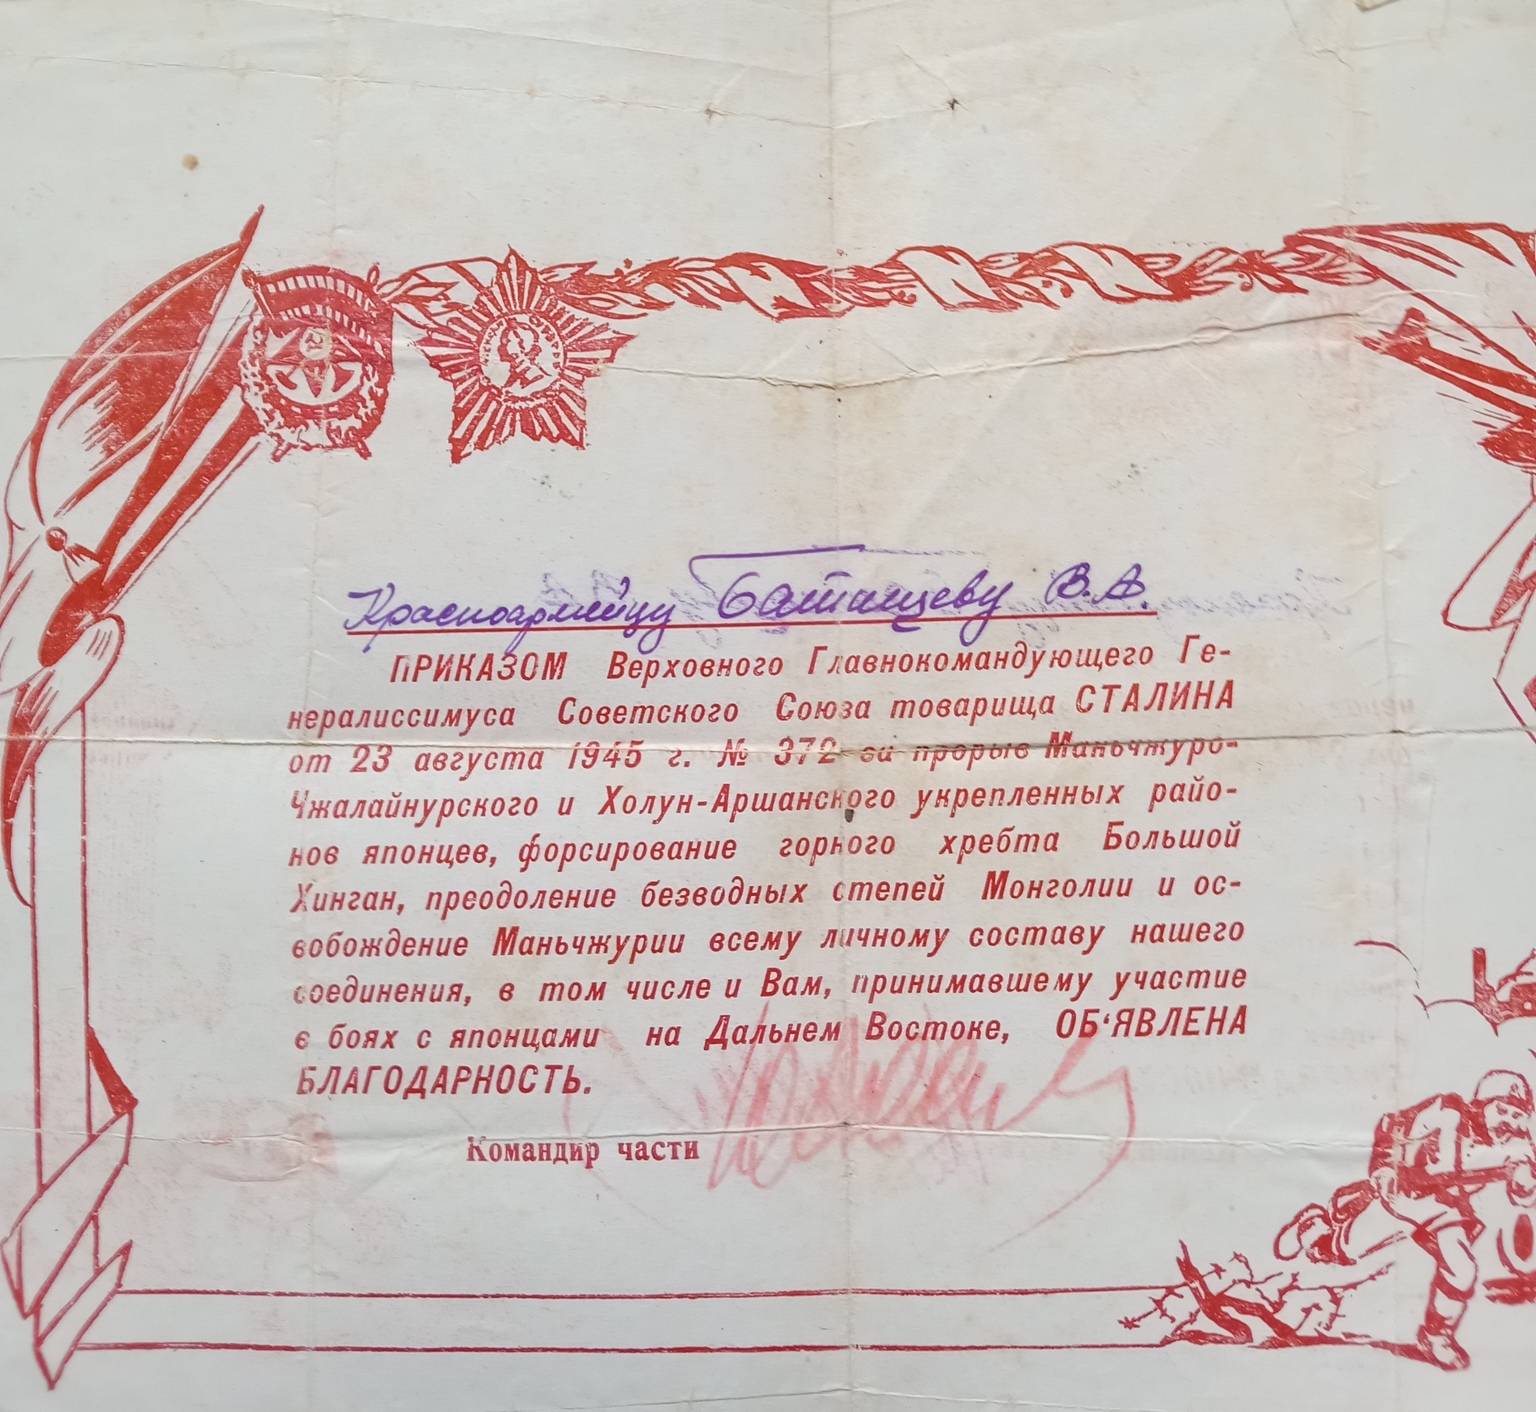 Красноармейцу Батищеву В.А.
ПРИКАЗОМ Верховного Главнокомандующего Ге-
нералиссимуса Советского Союза товарища СТАЛИНА
от 23 августа 1945 г. № 372 за прорыв Маньчжуро-
Чжалайнурского и Холун-Аршанского укрепленных райо-
нов японцев, форсирование горного хребта Большой
Хинган, преодоление безводных степей Монголии и ос-
вобождение Маньчжурии всему личному составу нашего
соединения, в том числе и Вам, принимавшему участие
в боях с японцами на Дальнем Востоке, ОБ‘ЯВЛЕНА
БЛАГОДАРНОСТЬ.
Командир части